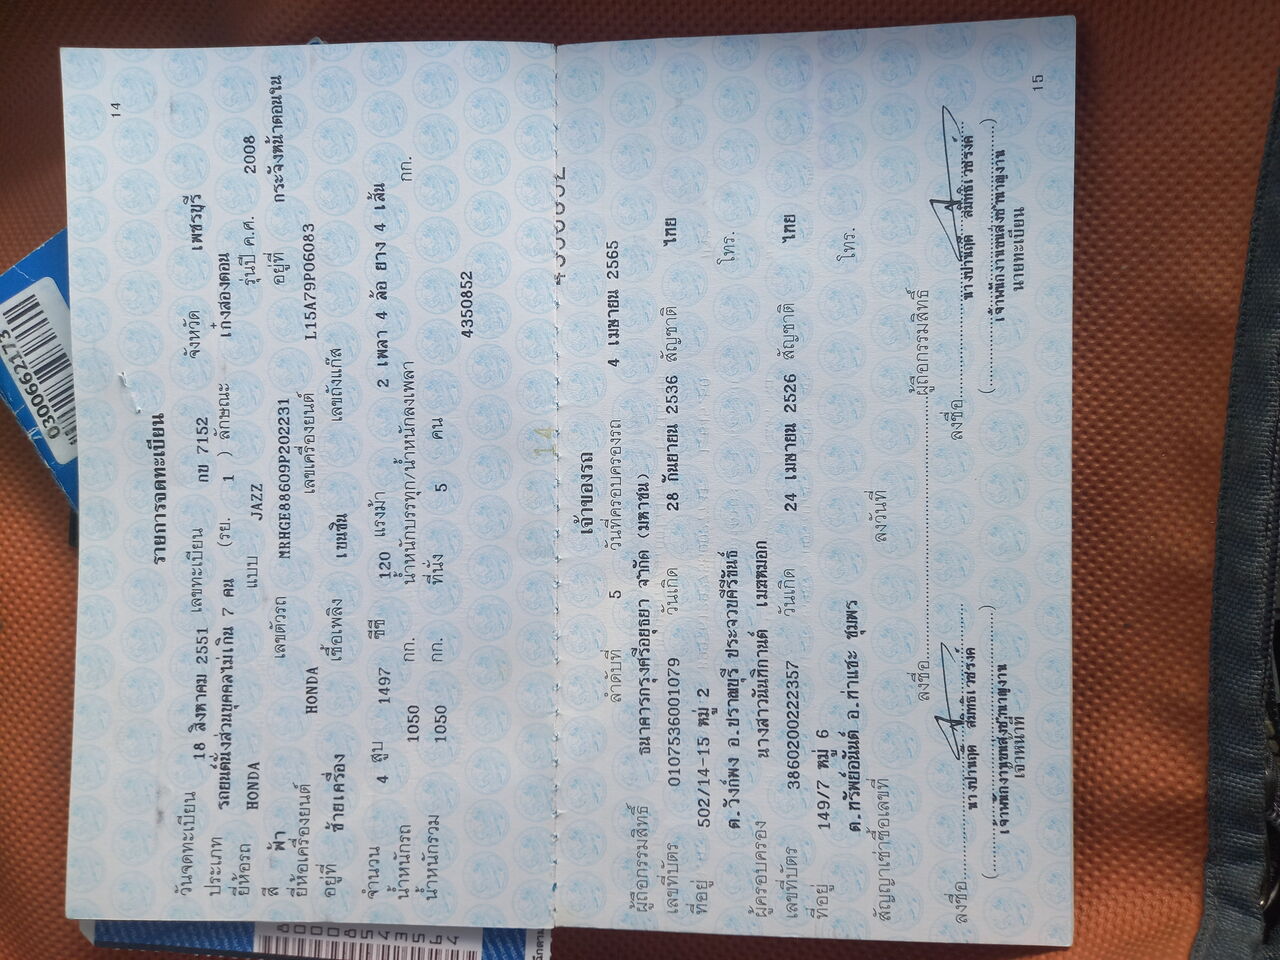 14
รายการจดทะเบียน
วันจดทะเบียน 18 สิงหาคม 2551 เลขทะเบียน กข 7152 จังหวัด เพชรบุรี
ประเภท รถยนต์นั่งส่วนบุคคลไม่เกิน 7 คน (รย. 1 ) ลักษณะ เก๋งสองตอน
ยี่ห้อรถ HONDA แบบ JAZZ รุ่นปี ค.ศ. 2008
สี ฟ้า เลขตัวรถ MRHGE88609P202231 อยู่ที่ กระจังหน้าตอนใน
ยี่ห้อเครื่องยนต์ HONDA เลขเครื่องยนต์ L15A79P06083
อยู่ที่ ซ้ายเครื่อง เชื้อเพลิง เบนซิน เลขถังแก๊ส
จำนวน 4 สูบ 1497 ซีซี 120 แรงม้า 2 เพลา 4 ล้อ ยาง 4 เส้น
น้ำหนักรถ 1050 กก. น้ำหนักบรรทุก/น้ำหนักลงเพลา กก.
น้ำหนักรวม 1050 กก. ที่นั่ง 5 คน
4350852
14
เจ้าของรถ
ลำดับที่ 5 วันที่ครอบครองรถ 4 เมษายน 2565
ผู้ถือกรรมสิทธิ์ ธนาคารกรุงศรีอยุธยา จำกัด (มหาชน)
เลขที่บัตร 0107536001079 วันเกิด 28 กันยายน 2536 สัญชาติ ไทย
ที่อยู่ 502/14-15 หมู่ 2 โทร.
ต.วังก์พง อ.ปราณบุรี ประจวบคีรีขันธ์
ผู้ครอบครอง นางสาวนันทิกานต์ เมฆหมอก
เลขที่บัตร 3860200222357 วันเกิด 24 เมษายน 2526 สัญชาติ ไทย
ที่อยู่ 149/7 หมู่ 6 โทร.
ต.ทรัพย์อนันต์ อ.ท่าแซะ ชุมพร
สัญญาเช่าซื้อเลขที่ ลงวันที่
ลงชื่อ ผู้ถือกรรมสิทธิ์
ลงชื่อ ลงชื่อ
เจ้าพนักงานขนส่งชำนาญงาน เจ้าพนักงานขนส่งชำนาญงาน
เจ้าหน้าที่ นายทะเบียน
15
0300662173